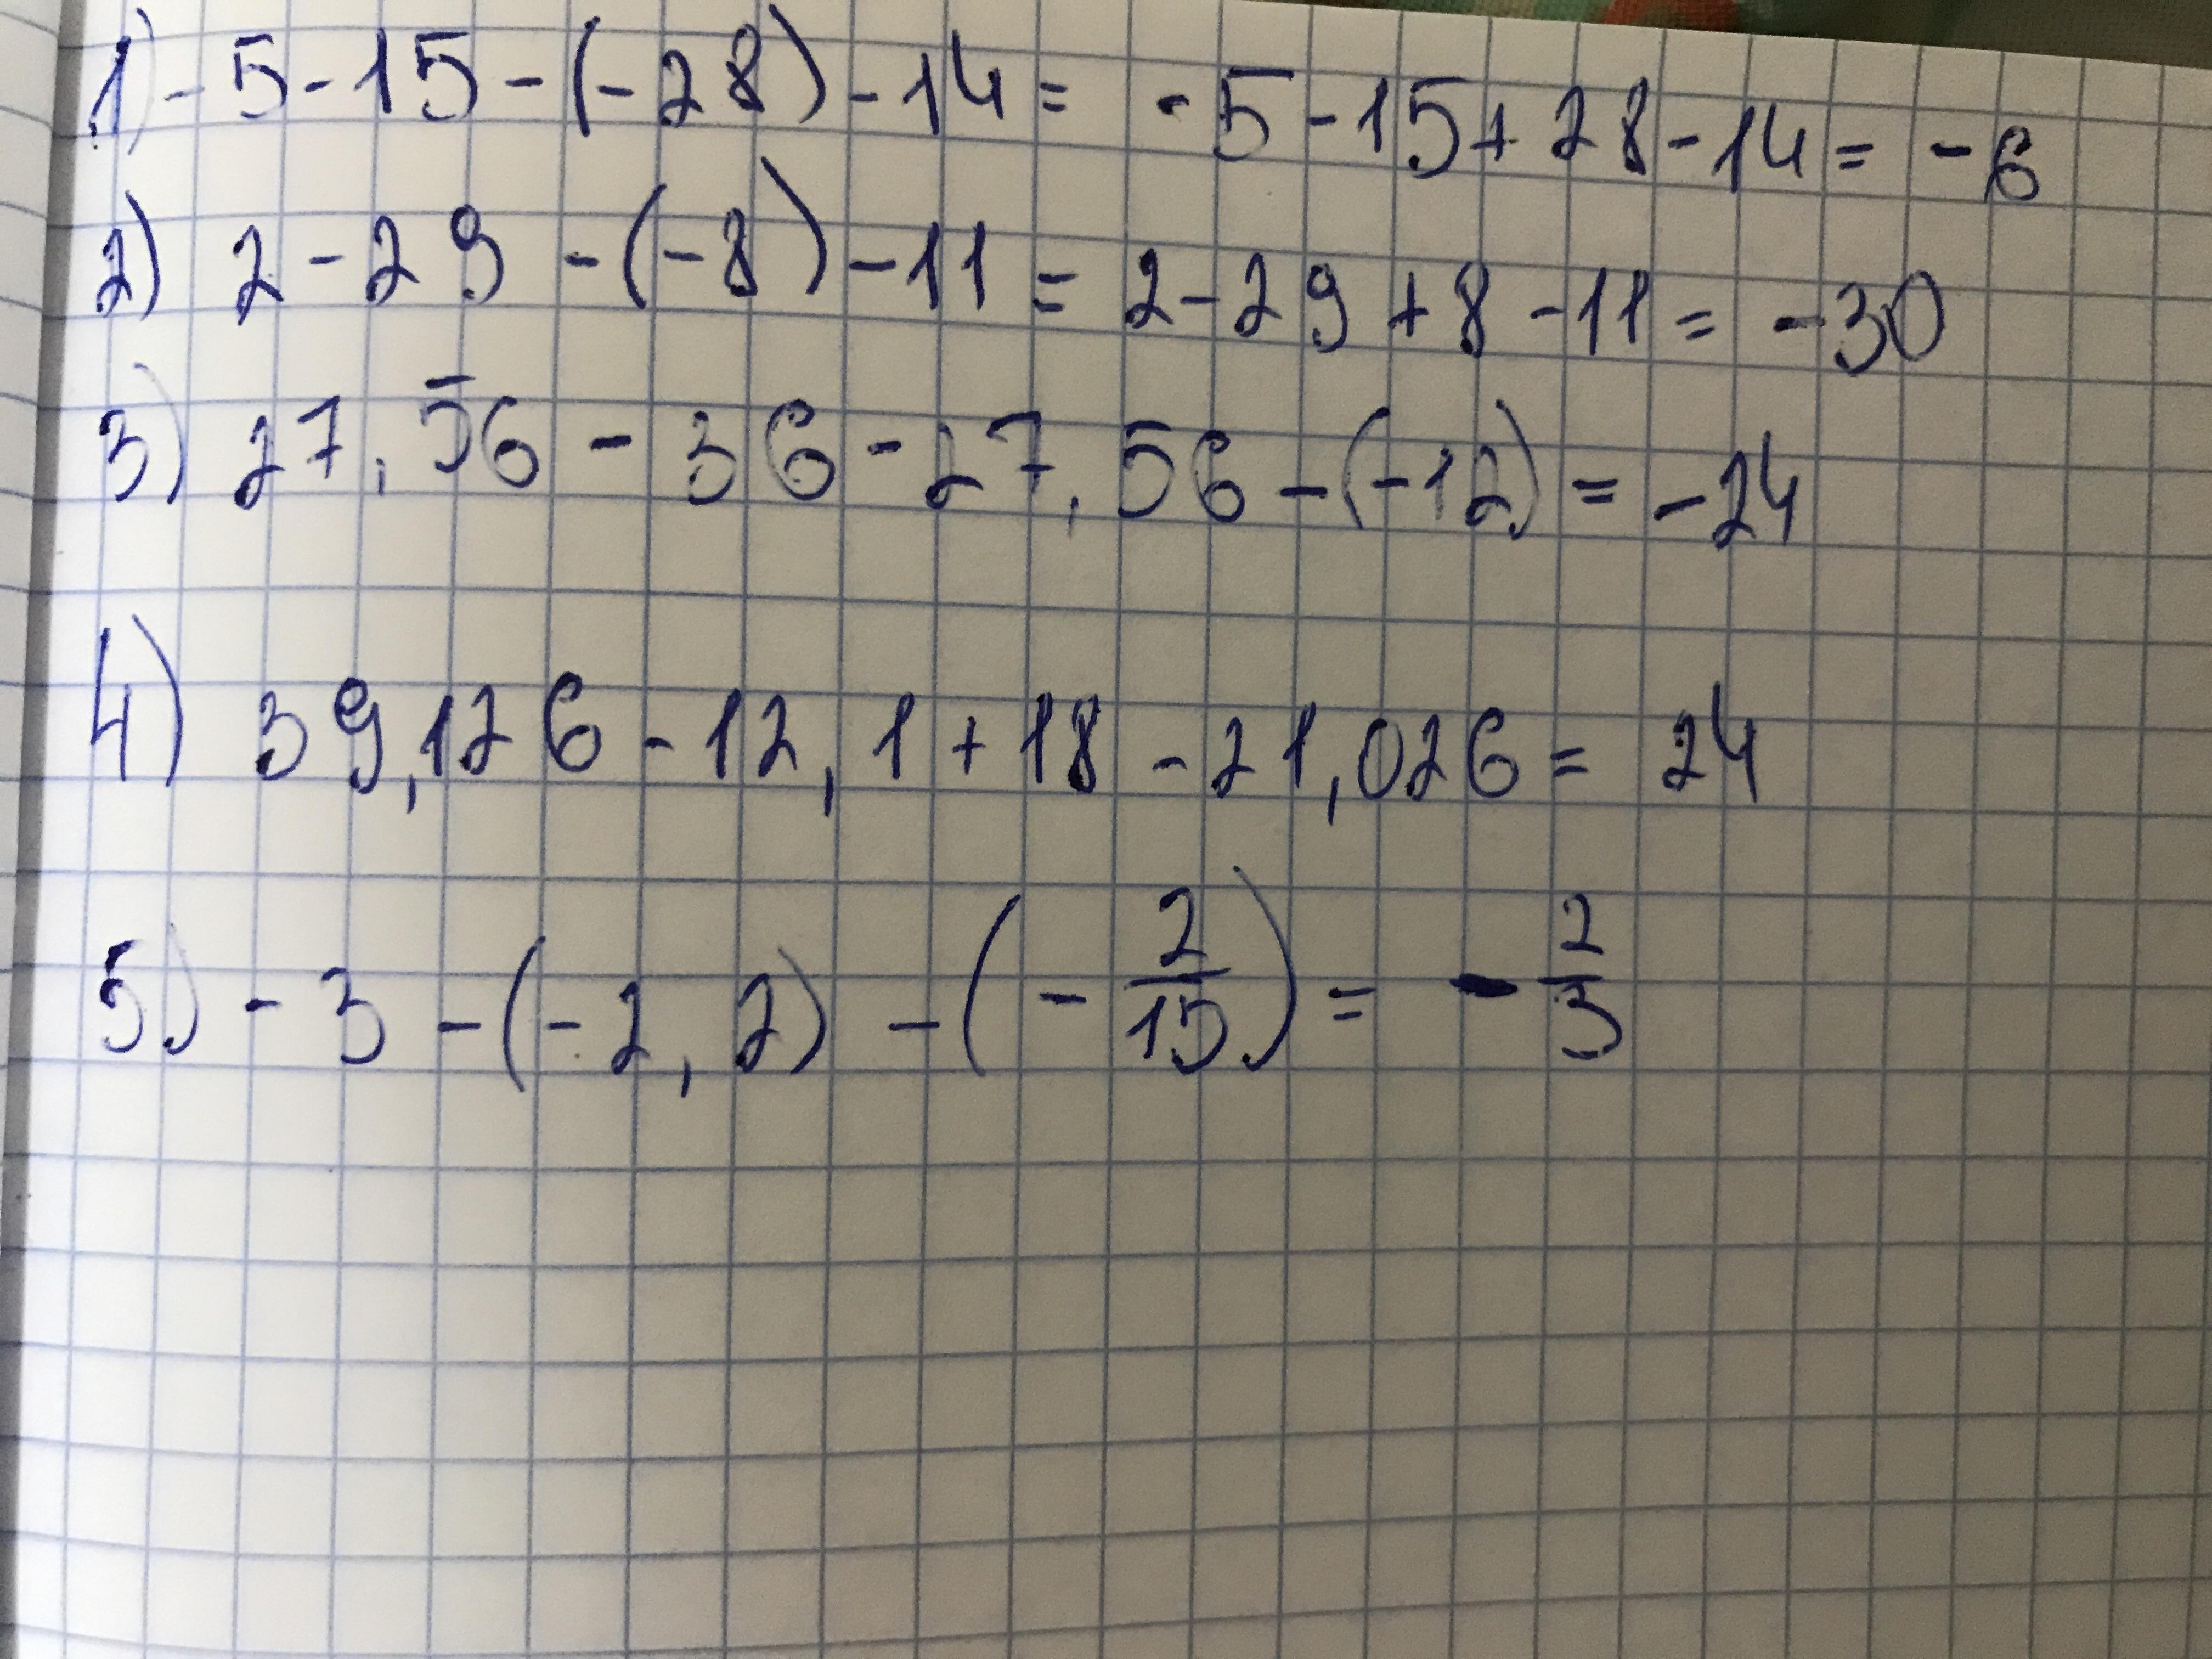 1) - 5 - 15 - (-28) - 14 = - 5 - 15 + 28 - 14 = - 6
2) 2 - 29 - (-8) - 11 = 2 - 29 + 8 - 11 = - 30
3) 27,56 - 36 - 27,56 - (-12) = - 24
4) 39,126 - 12,1 + 18 - 21,026 = 24
5) - 3 - (-2,2) - (- 2/15) = - 2/3